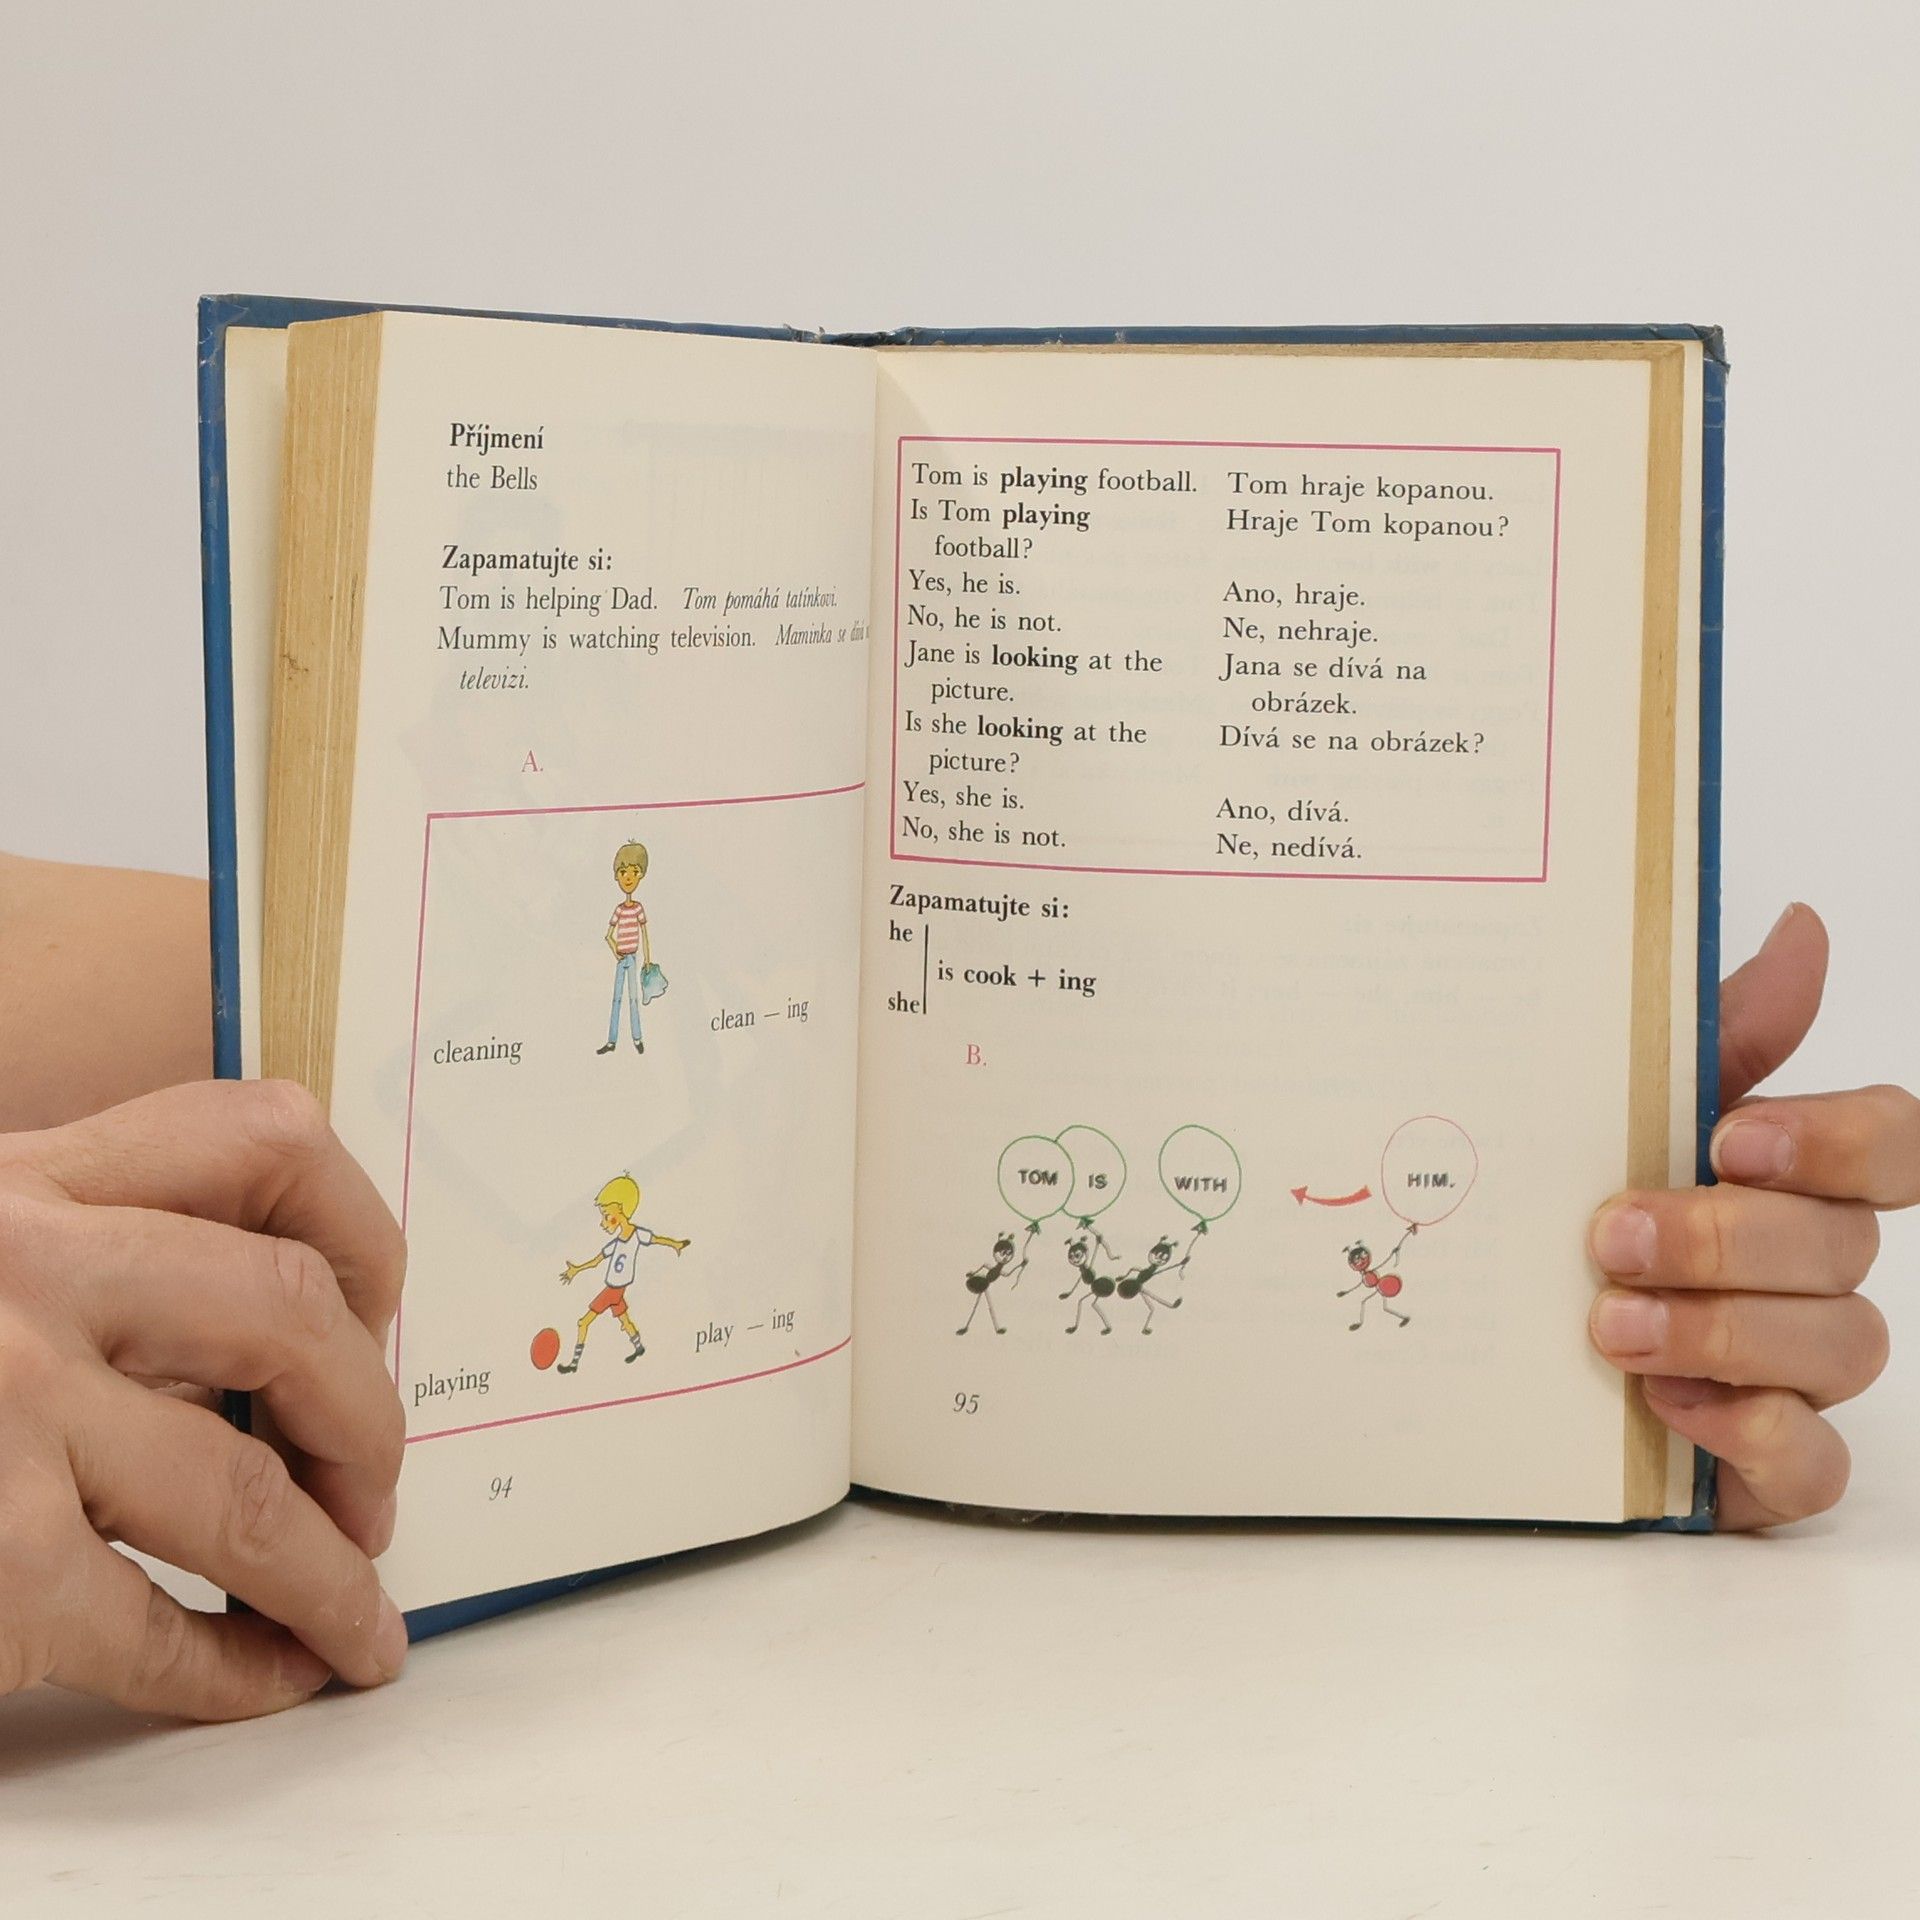 Příjmení
the Bells
Zapamatujte si:
Tom is helping Dad. Tom pomáhá tatínkovi.
Mummy is watching television. Maminka se dívá
televizi.
A.
cleaning
clean – ing
playing
play – ing
94
Tom is playing football. Tom hraje kopanou.
Is Tom playing Hraje Tom kopanou?
football?
Yes, he is. Ano, hraje.
No, he is not. Ne, nehraje.
Jane is looking at the Jana se dívá na
picture. obrázek.
Is she looking at the Dívá se na obrázek?
picture?
Yes, she is. Ano, dívá.
No, she is not. Ne, nedívá.
Zapamatujte si:
he
is cook + ing
she
B.
TOM IS WITH HIM.
6
95